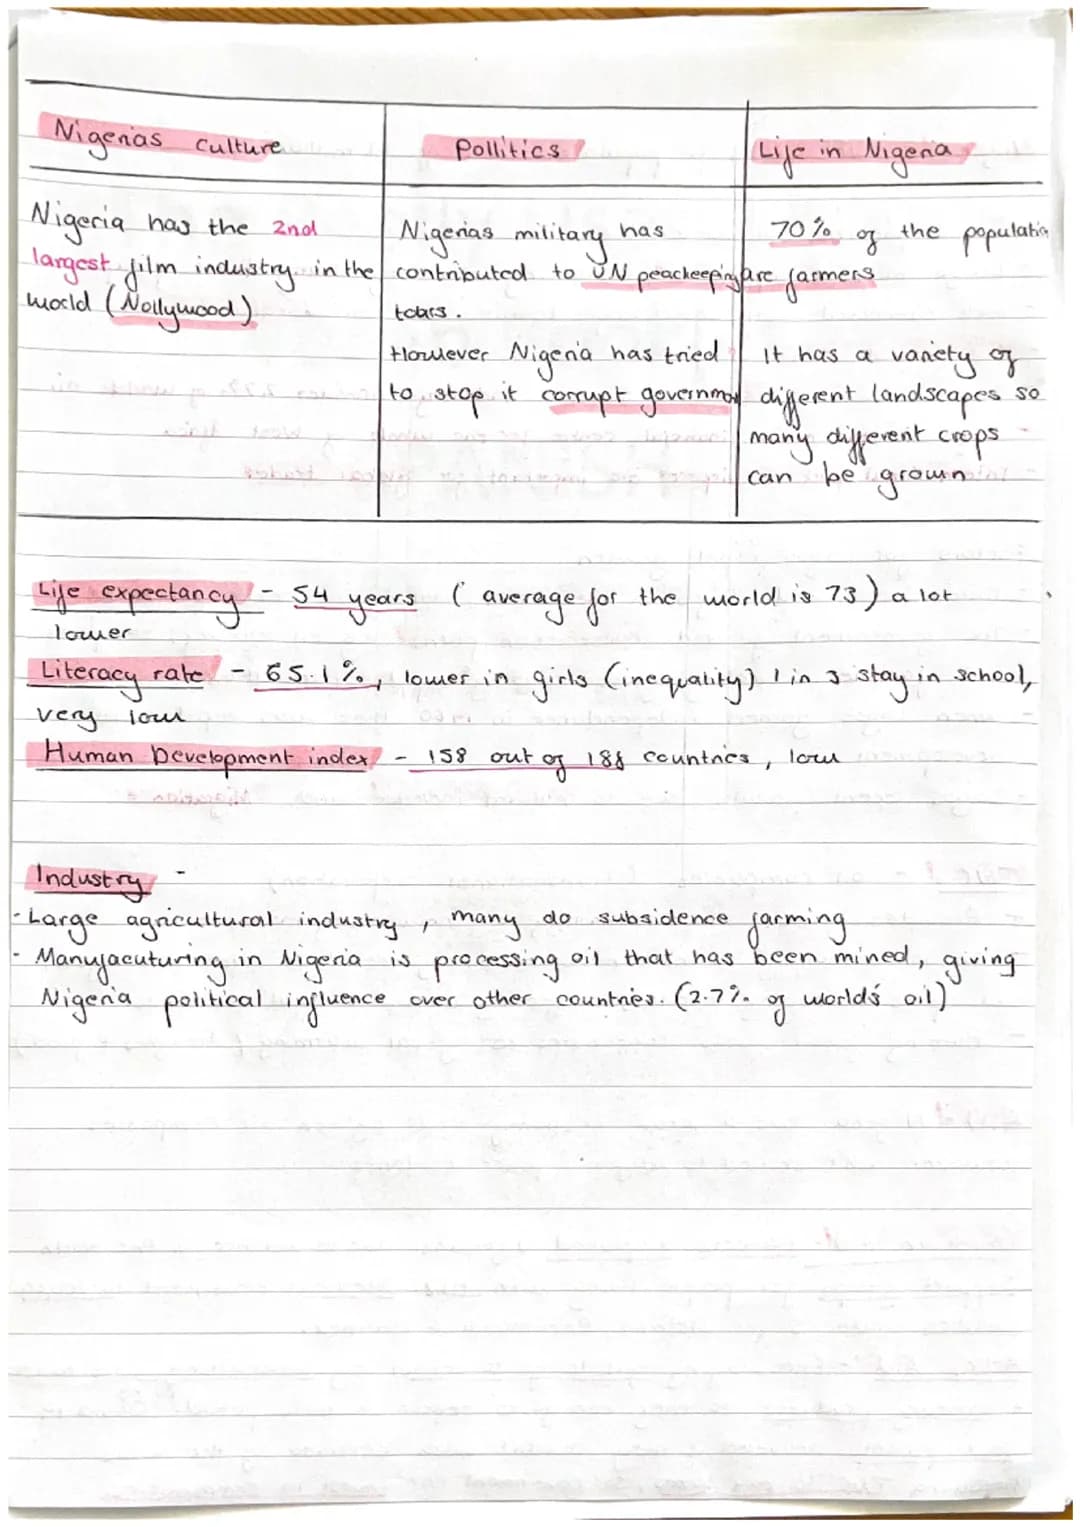 Nigerias culture
Pollitics
Life in Nigeria
Nigeria has the 2nd
largest film industry in the
world (Nollywood)
Nigerias military has
contributed to UN peackeeping
tours.
However Nigeria has tried
to stop it corrupt governmon
70% of the population
are farmers
It has a variety of
different landscapes so
many different crops
can be grown
Life expectancy - 54 years ( average for the world is 73) a lot
lower
Literacy rate - 65.1%, lower in girls (inequality) 1 in 3 stay in school,
very low
Human Development index - 158 out of 188 countries, low
Industry -
- Large agricultural industry, many do subsidence farming
- Manufacuturing in Nigeria is processing oil that has been mined, giving
Nigeria political influence over other countries. (2.7% of world's oil)